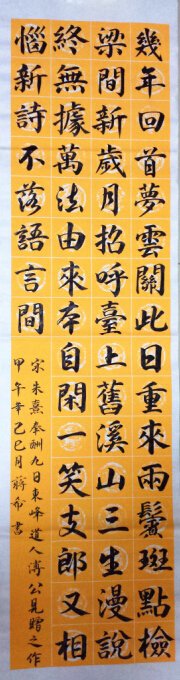 幾年回首夢雲關此日重來雨鬢斑點檢
梁間新歲月招呼臺上舊溪山三生漫說
終無據萬法由來本自閑一笑支郎又相
惱新詩不落語言間
宋朱熹奉酬九日東峰道人溥公見贈之作
甲午年己巳月蔣希書